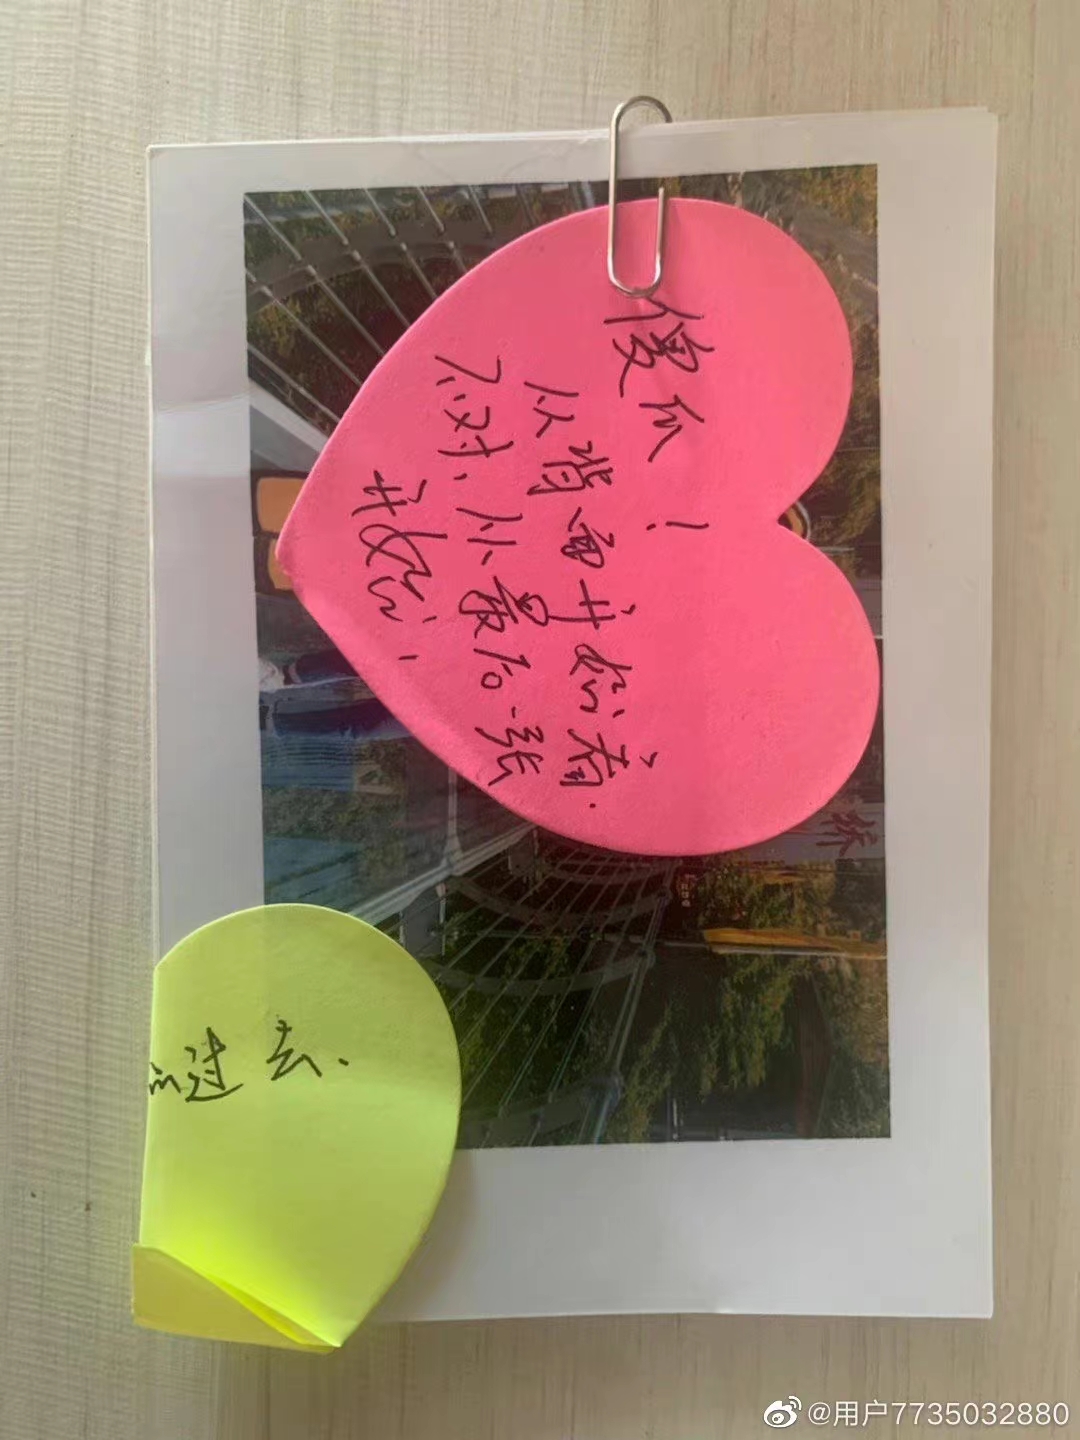 傻瓜!
从背面开始看.
不对,从最后一张
开始,
过去.
@用户7735032880